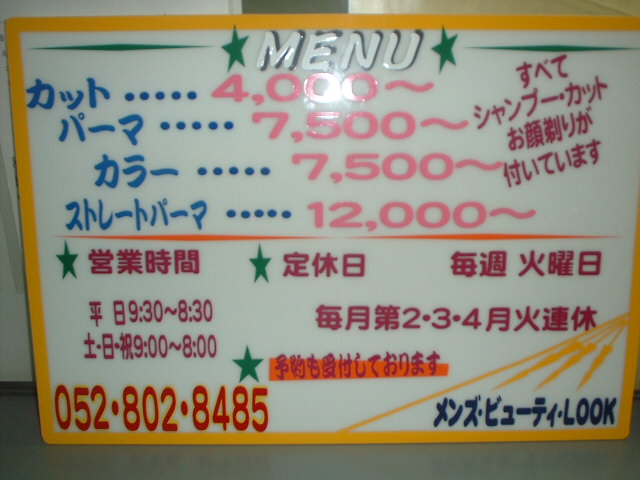 MENU
カット ····· 4,000～
パーマ ····· 7,500～
カラー ····· 7,500～
ストレートパーマ ····· 12,000～
すべて
シャンプー・カット
お顔剃りが
付いています
営業時間
平 日9:30～8:30
土・日・祝9:00～8:00
定休日 毎週 火曜日
毎月第2・3・4月火連休
予約も受付しております
052・802・8485
メンズ・ビューティ・LOOK